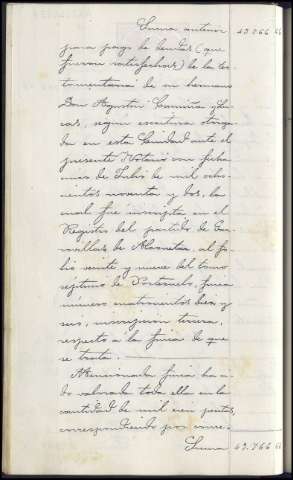 Suma anterior 49.766
para pago de deudas (que
fueron satisfechas) de la tes-
tamentaria de su hermano
Don Agustin
segun escritura otorga-
da en esta Ciudad ante el
presente Notario con fecha
de Julio de mil ocho-
cientos noventa y dos, la
cual fue inscripta en el
Registro del partido de
al fo-
lio veinte y nueve del tomo
séptimo de finca
número cuatrocientos diez y
seis, inscripcion tercera,
respecto a la finca de que
se trata.
Mencionada finca ha si-
do valorada toda ella en la
cantidad de mil cien pesetas,
correspondiendo por
Suma 49.766